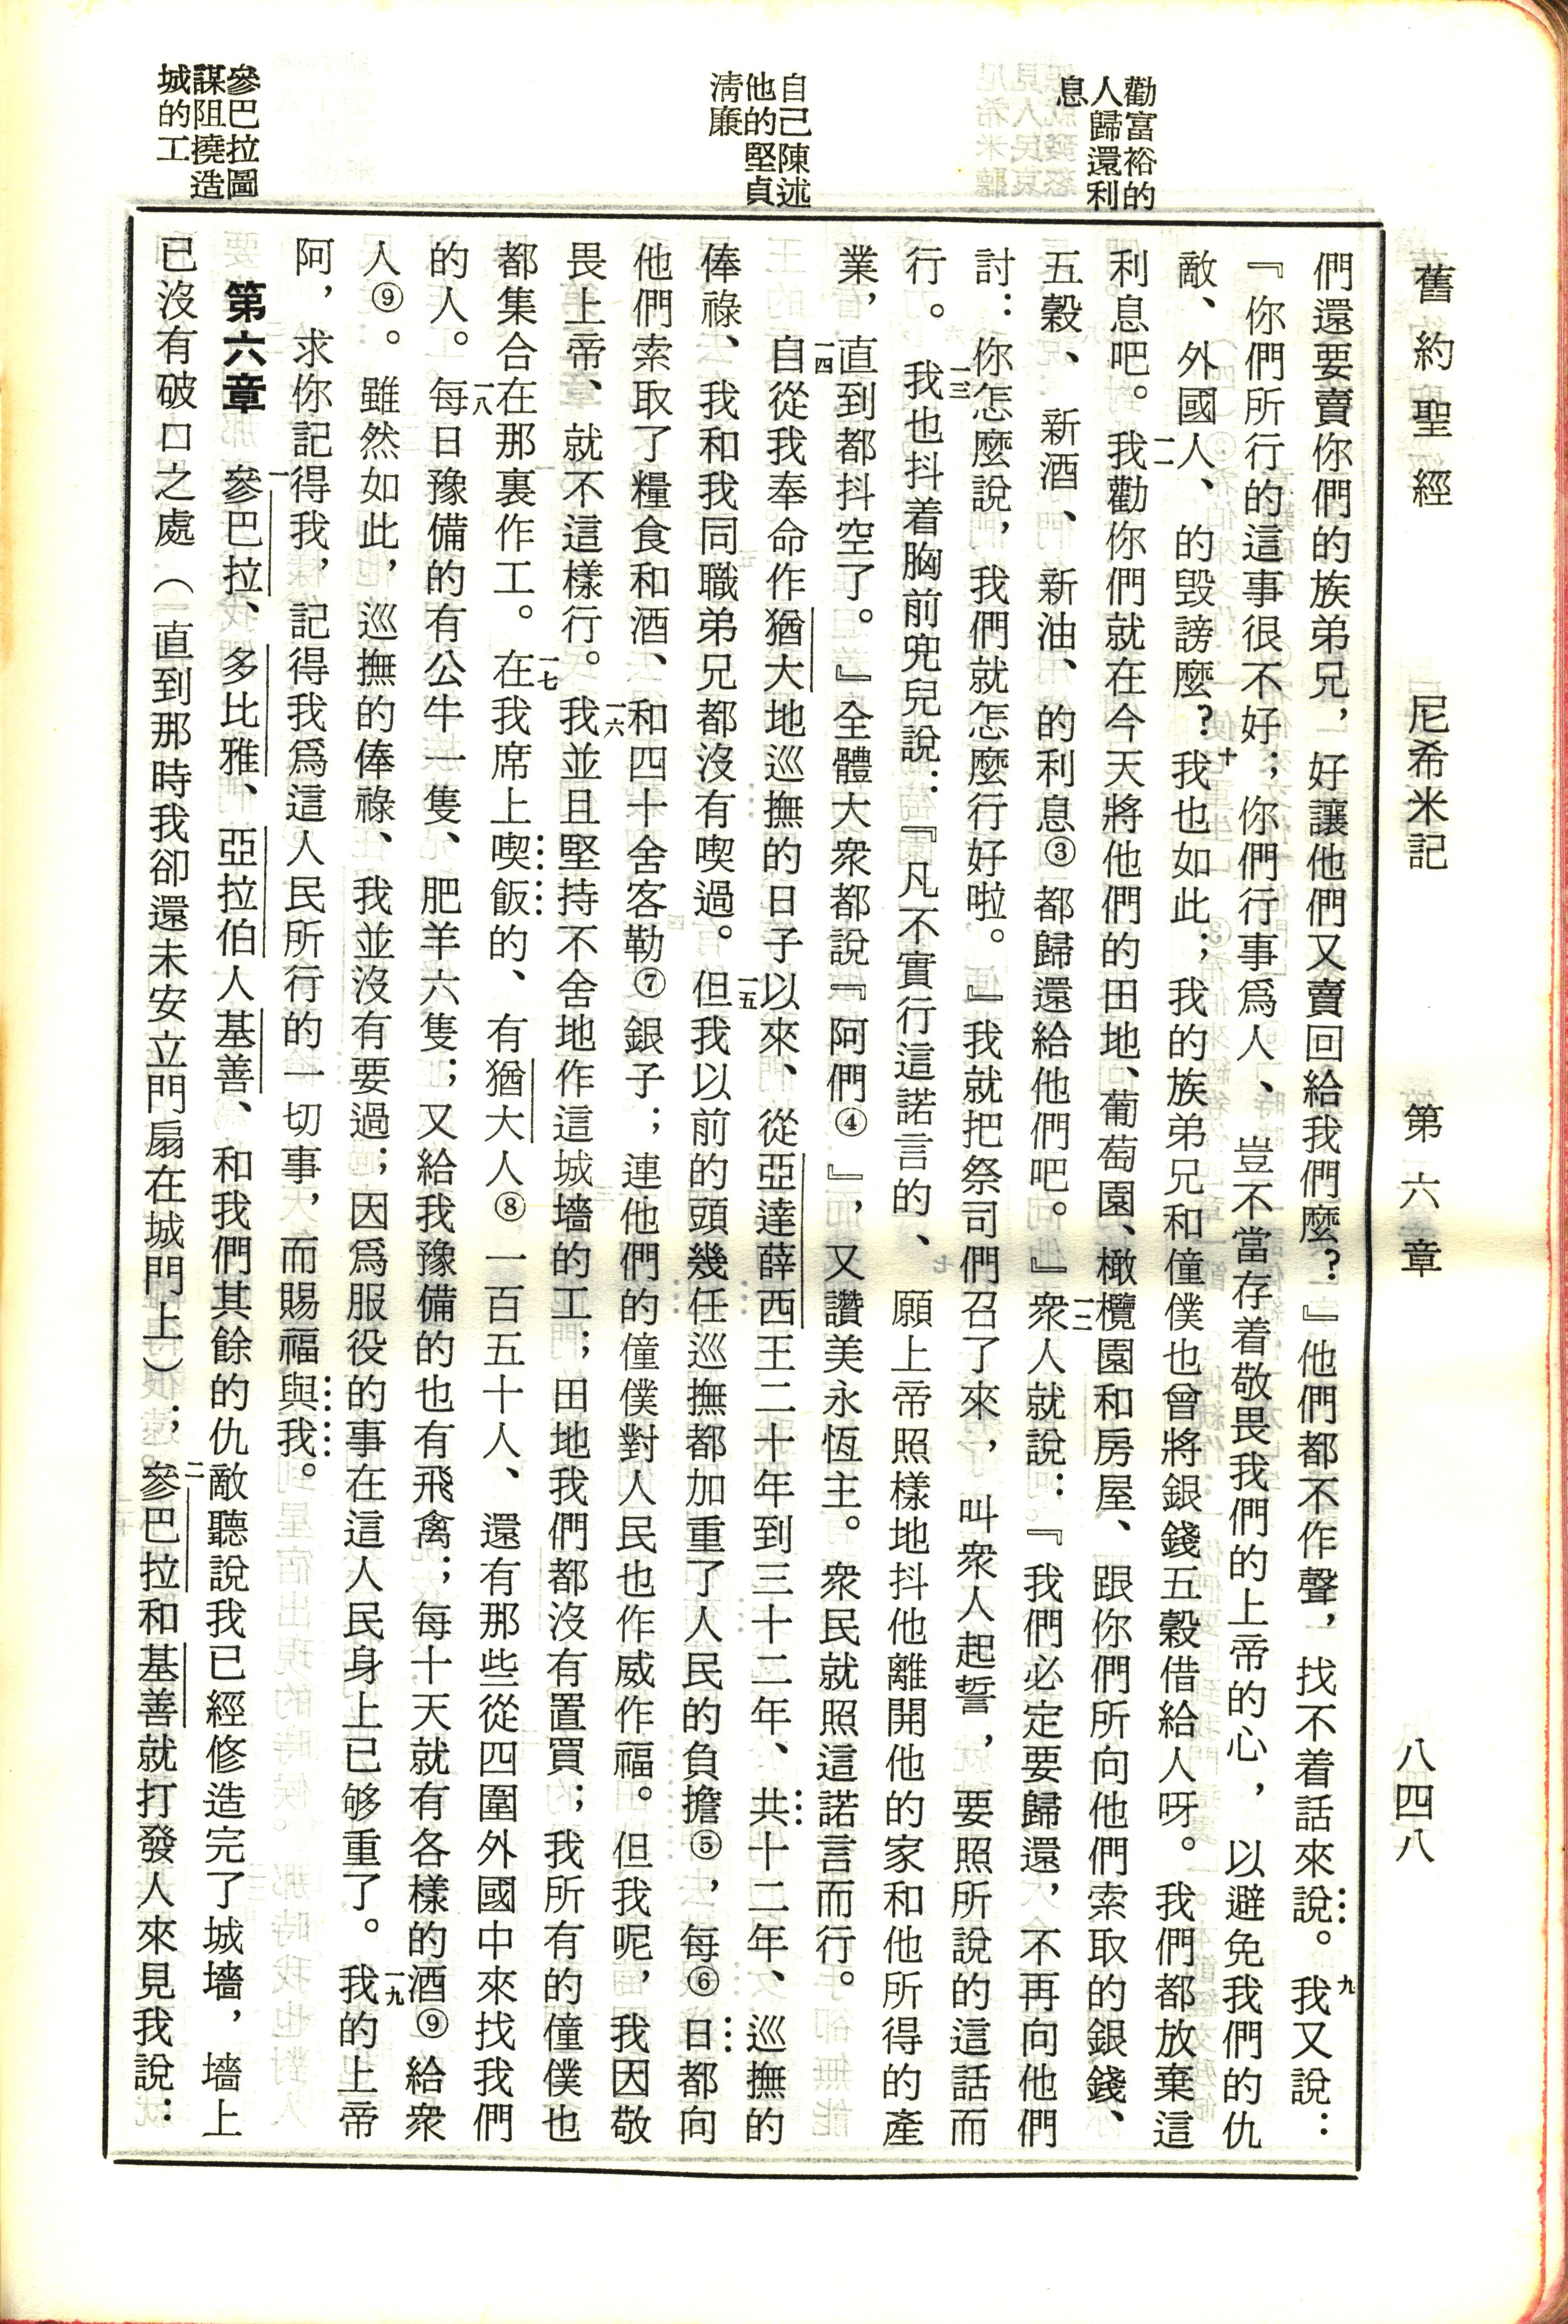 舊約聖經　尼希米記　第六章　八四八
勸富裕的
人歸還利
息
自己陳述
他的堅貞
淸廉
參巴拉圖
謀阻撓造
城的工
們還要賣你們的族弟兄，好讓他們又賣回給我們麼？』他們都不作聲，找不着話來說。九我又說：
『你們所行的這事很不好；你們行事爲人、豈不當存着敬畏我們的上帝的心，以避免我們的仇
敵、外國人、的毀謗麼？十我也如此；我的族弟兄和僮僕也曾將銀錢五穀借給人呀。我們都放棄這
利息吧。一一我勸你們就在今天將他們的田地、葡萄園、橄欖園和房屋、跟你們所向他們索取的銀錢、
五穀、新酒、新油、的利息③都歸還給他們吧。』一二衆人就說：『我們必定要歸還，不再向他們
討：你怎麼說，我們就怎麼行好啦。』我就把祭司們召了來，叫衆人起誓，要照所說的這話而
行。一三我也抖着胸前兜兒說：『凡不實行這諾言的、願上帝照樣地抖他離開他的家和他所得的產
業，直到都抖空了。』全體大衆都說『阿們④』，又讚美永恆主。衆民就照這諾言而行。
一四自從我奉命作猶大地巡撫的日子以來、從亞達薛西王二十年到三十二年、共十二年、巡撫的
俸祿、我和我同職弟兄都沒有喫過。一五但我以前的頭幾任巡撫都加重了人民的負擔⑤，每⑥日都向
他們索取了糧食和酒、和四十舍客勒⑦銀子；連他們的僮僕對人民也作威作福。但我呢，我因敬
畏上帝、就不這樣行。一六我並且堅持不舍地作這城墻的工；田地我們都沒有置買；我所有的僮僕也
都集合在那裏作工。一七在我席上喫飯的、有猶大人⑧一百五十人、還有那些從四圍外國中來找我們
的人。一八每日豫備的有公牛一隻、肥羊六隻；又給我豫備的也有飛禽；每十天就有各樣的酒⑨給衆
人⑨。雖然如此，巡撫的俸祿、我並沒有要過；因爲服役的事在這人民身上已够重了。一九我的上帝
阿，求你記得我，記得我爲這人民所行的一切事，而賜福與我。
第六章　一參巴拉、多比雅、亞拉伯人基善、和我們其餘的仇敵聽說我已經修造完了城墻，墻上
已沒有破口之處（直到那時我卻還未安立門扇在城門上）；二參巴拉和基善就打發人來見我說：